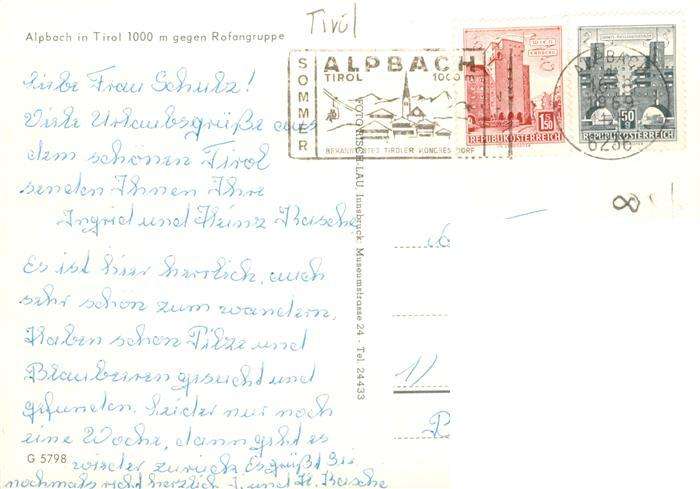 Tirol
Alpbach in Tirol 1000 m gegen Rofangruppe
SOMMER
ALPBACH
TIROL 1000 m
BEKANNTESTES TIROLER KONGRESSDORF
1.50
REPUBLIK ÖSTERREICH
50
REPUBLIK ÖSTERREICH
6236
8
Liebe Frau Schulz!
Viele Urlaubsgrüße aus
dem schönen Tirol
senden Ihnen Ihre
Ingrid und Heinz
Es ist hier herrlich, auch
sehr schön zum wandern.
Haben schon Pilze und
Blaubeeren gesucht und
gefunden. Leider nur noch
eine Woche, dann geht es
wieder zurück. Es grüßt Sie
nochmals recht herzlich I. und H.
G 5798
Innsbruck, Museumstrasse 24 - Tel. 24433
1)